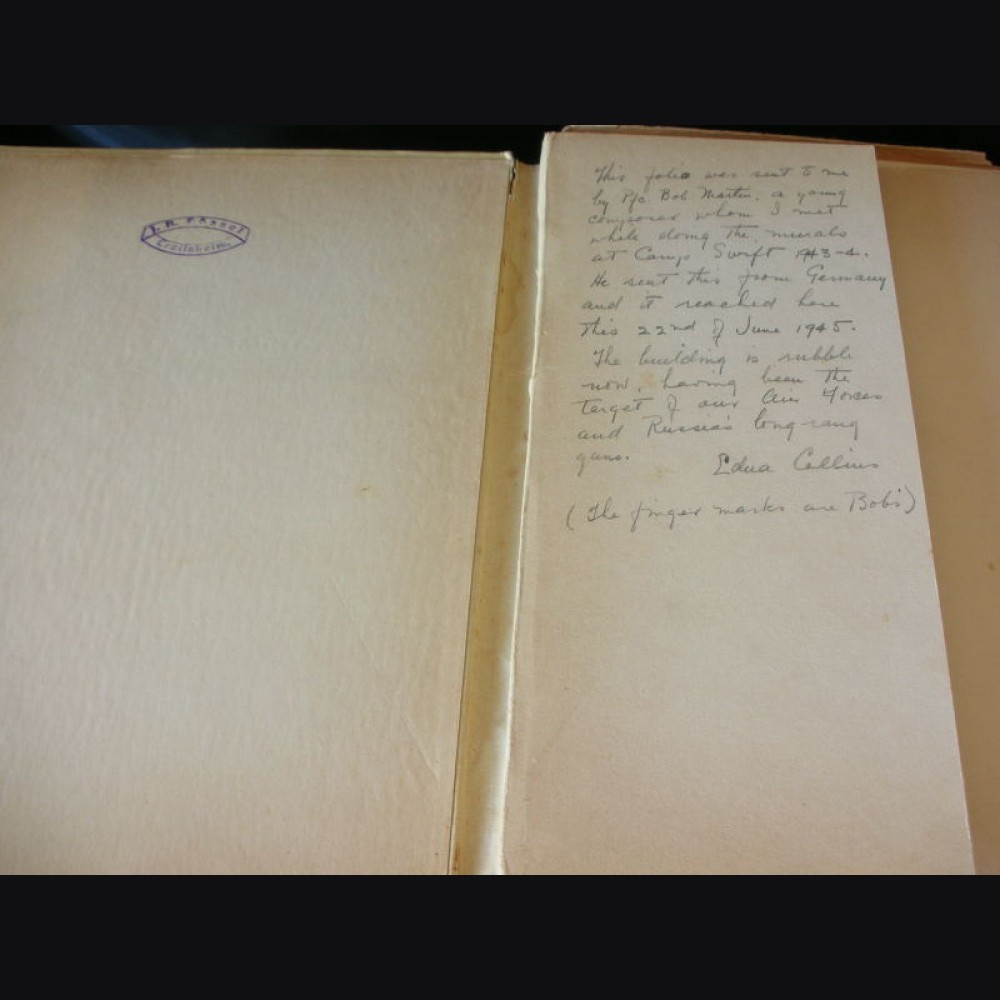 Crailsheim.
This folio was sent to me
by Pfc. Bob Martin, a young
composer whom I met
while doing the murals
at Camp Swift 1943-4.
He sent this from Germany
and it reached here
this 22nd of June 1945.
The building is rubble
now, having been the
target of our Air Forces
and Russia's long rang
guns.
Edna Collins
(The finger marks are Bobs')